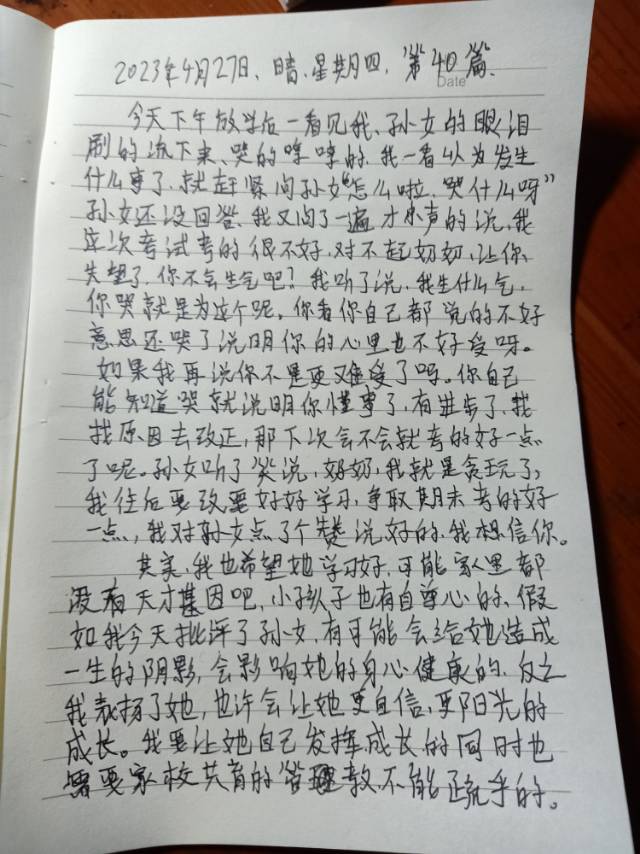 2023年4月27日、晴、星期四、第40篇、
Date
今天下午放学后一看见我、孙女的眼泪
刷的流下来、哭的哼哼的、我一看以为发生
什么事了、就赶紧问孙女“怎么啦、哭什么呀”
孙女还没回答、我又问了一遍才小声的说、我
这次考试考的很不好、对不起奶奶、让你
失望了、你不会生气吧？我听了说、我生什么气、
你哭就是为这个呢。你看你自己都说的不好
意思还哭了说明你的心里也不好受呀。
如果我再说你不是更难受了吗。你自己
能知道哭就说明你懂事了、有进步了、我
找原因去改正，那下次会不会就考的好一点
了呢。孙女听了笑说，奶奶，我就是贪玩了，
我往后要改要好好学习、争取期末考的好
一点，我对孙女点了个赞说好的、我相信你。
其实、我也希望她学习好、可能家里都
没有天才基因吧，小孩子也有自尊心的、假
如我今天批评了孙女，有可能会给她造成
一生的阴影，会影响她的身心健康的、反之
我表扬了她，也许会让她更自信、更阳光的
成长。我要让她自己发挥成长的同时也
需要家校共育的管理教、不能疏乎的。